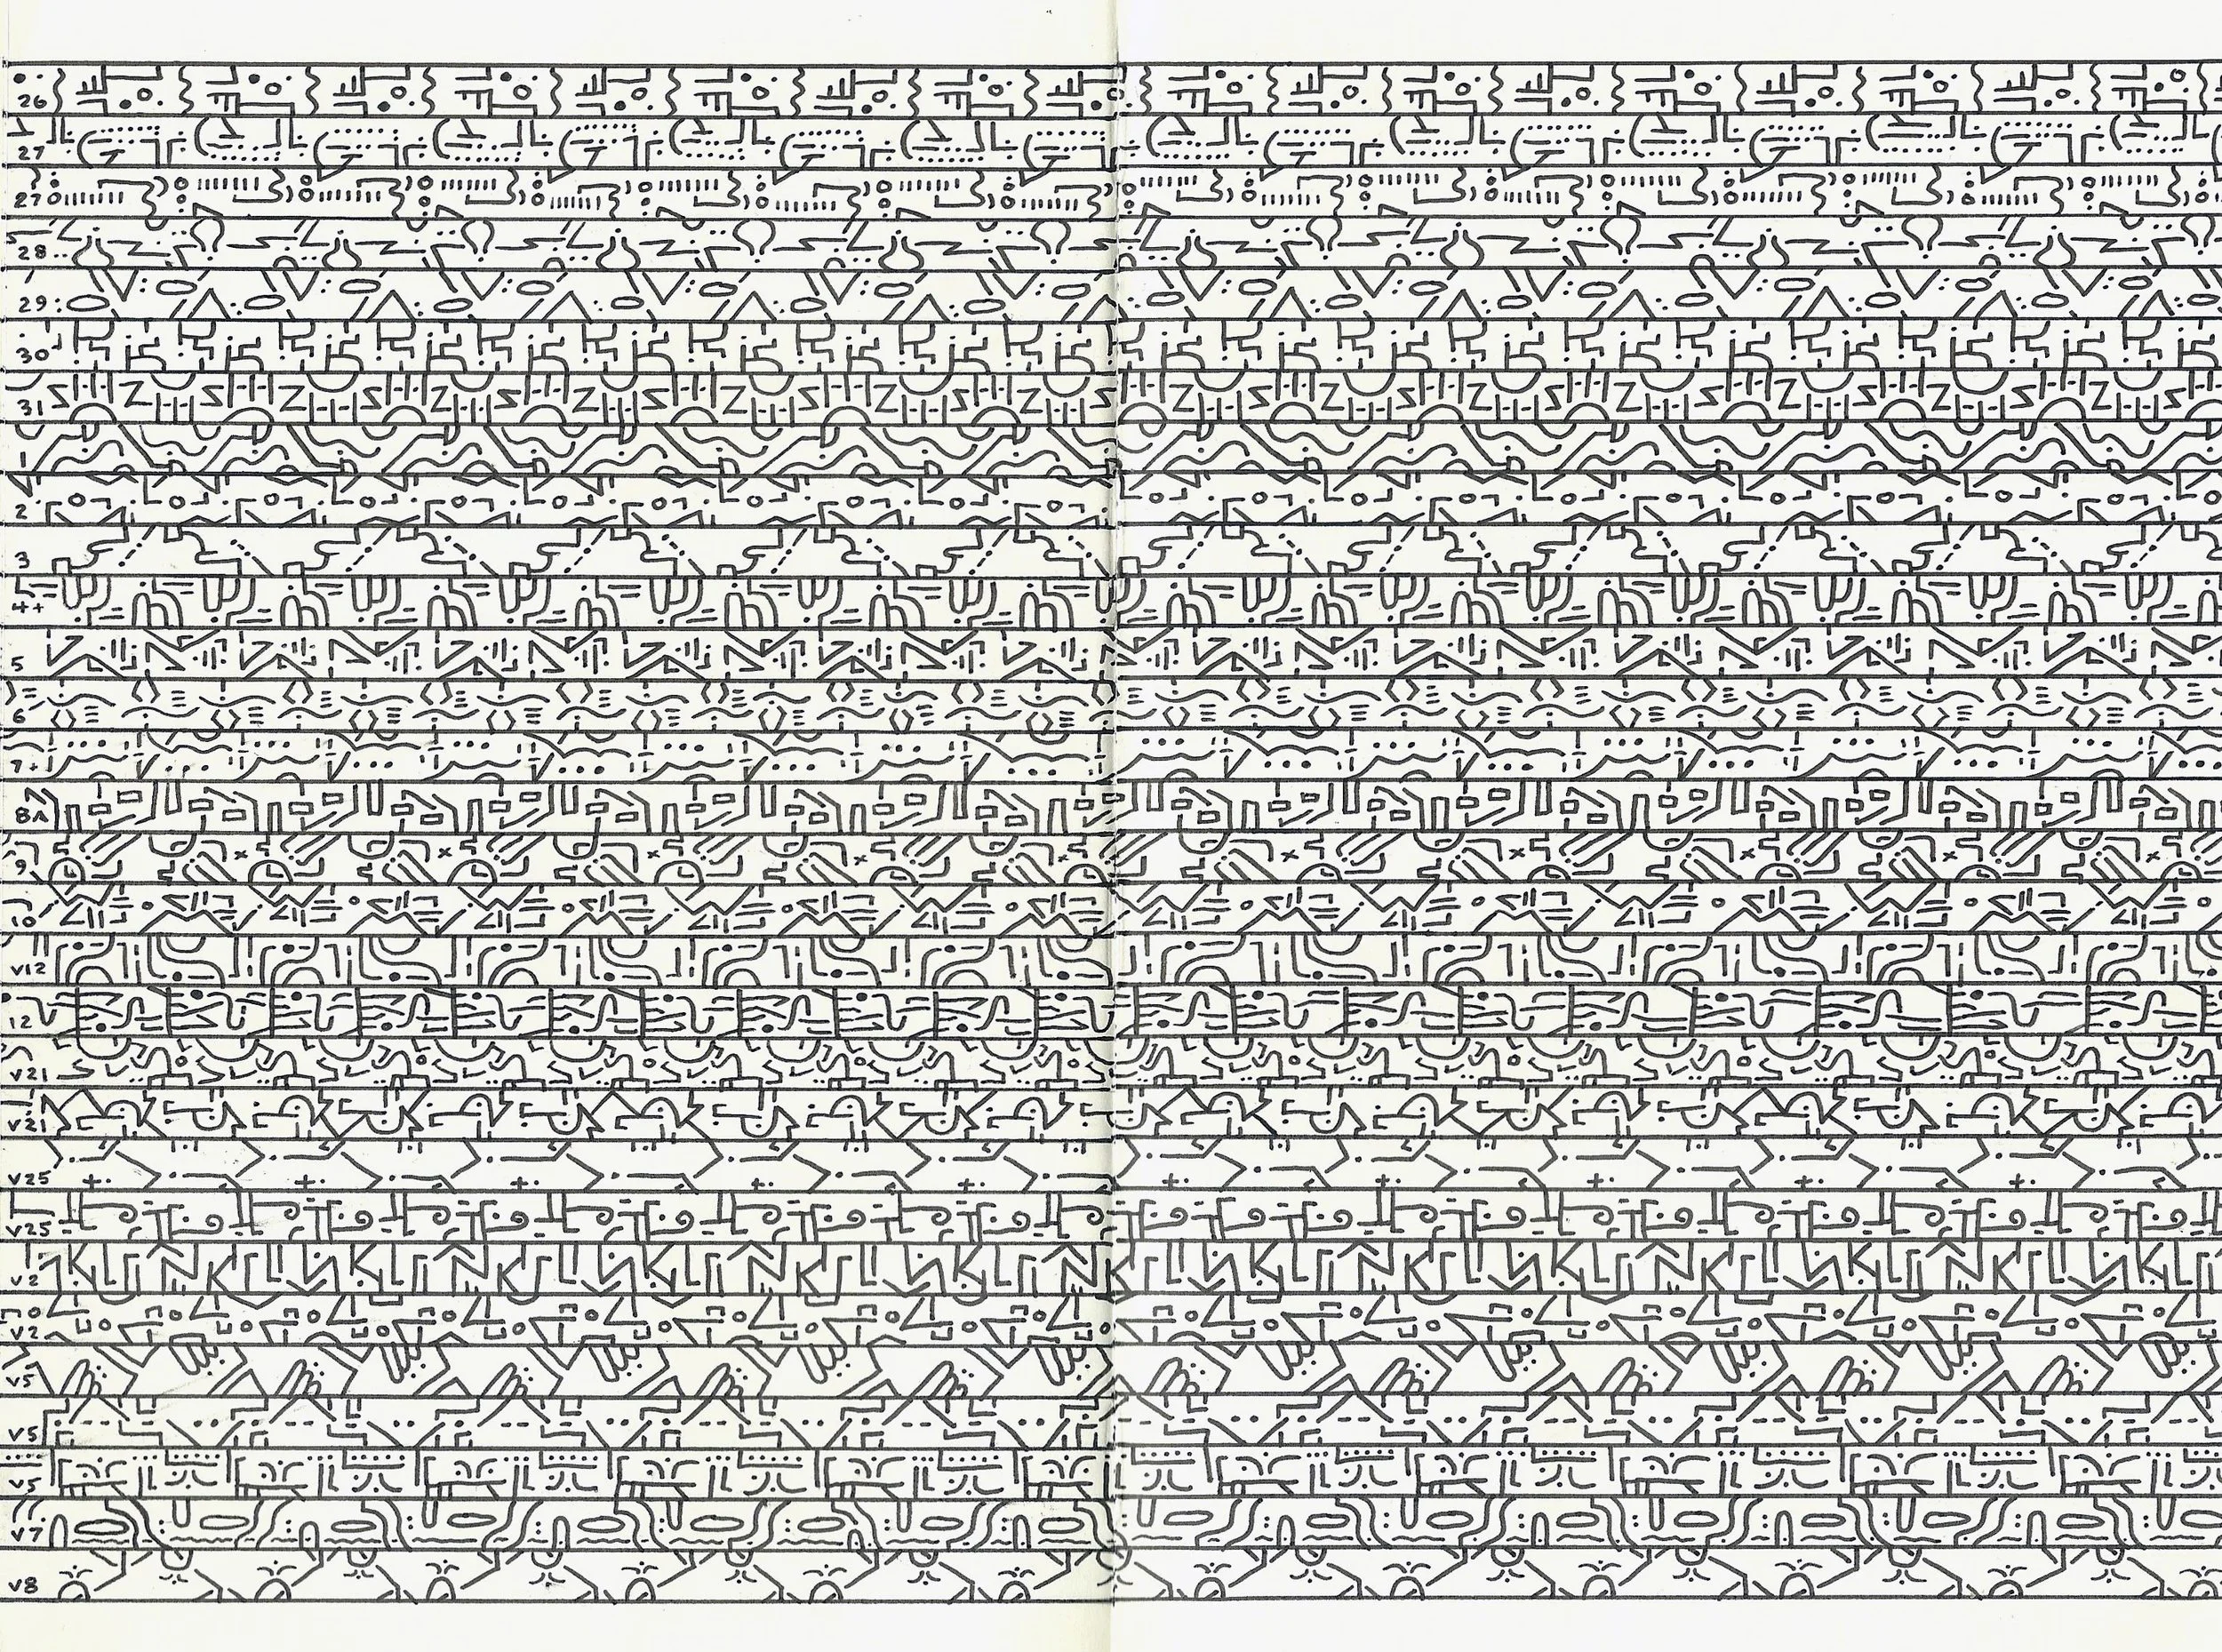 26
27
27
28
29
30
31
1
2
3
4+
5
6
7+
8A
9
10
V12
12
V21
V21
V25
V25
V2
V2
V5
V5
V5
V7
V8